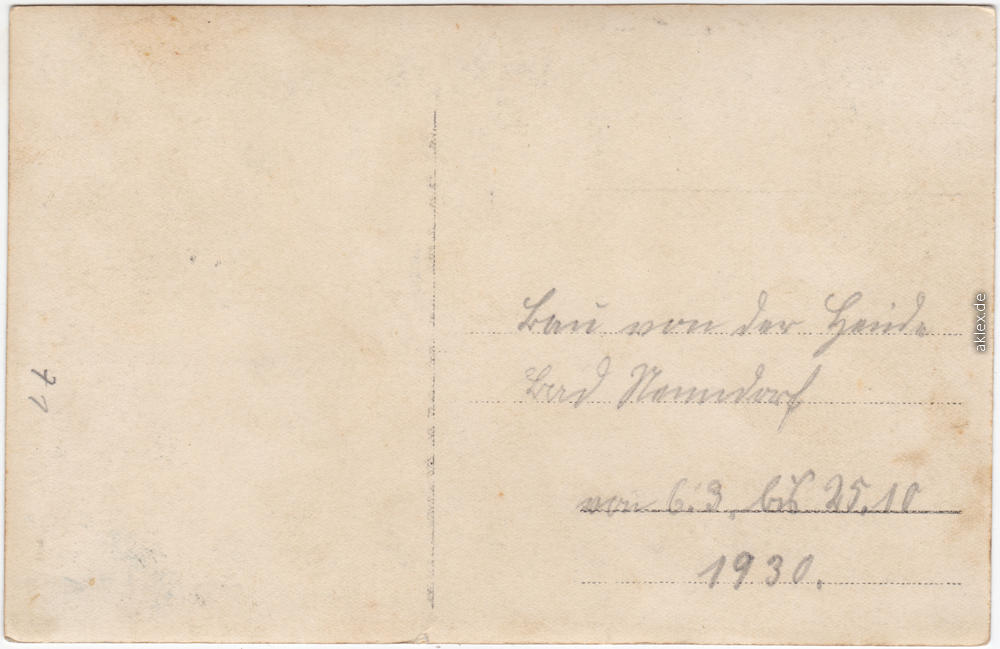 Bau von der Heide
Bad Nenndorf
von 6.3. bis 25.10
1930.
77
aklex.de